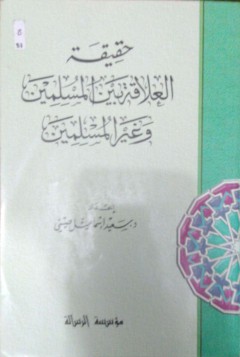 حقيقة
العلاقة بين المسلمين
وغير المسلمين
د. سعيد إسماعيل صيني
مؤسسة الرسالة